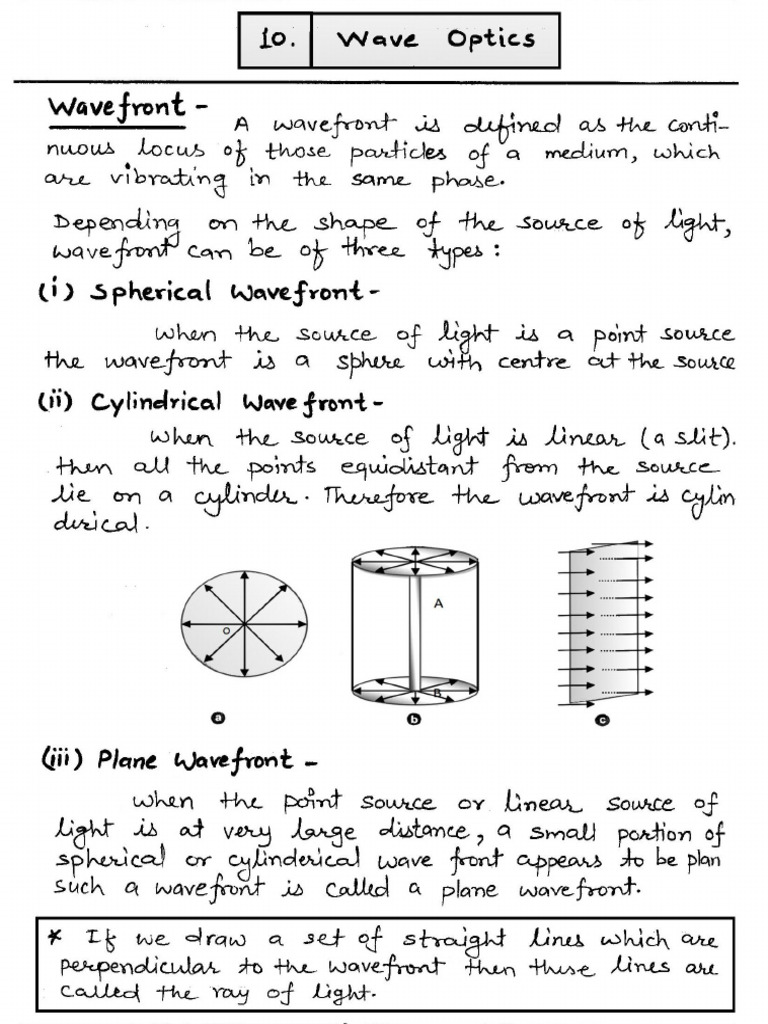 10. Wave Optics
Wavefront -
A wavefront is defined as the conti-
nuous locus of those particles of a medium, which
are vibrating in the same phase.
Depending on the shape of the source of light,
wavefront can be of three types :
(i) Spherical Wavefront -
When the source of light is a point source
the wavefront is a sphere with centre at the source
(ii) Cylindrical Wavefront -
When the source of light is linear (a slit).
then all the points equidistant from the source
lie on a cylinder. Therefore the wavefront is cylin
derical.
O
A
B
a b c
(iii) Plane Wavefront -
When the point source or linear source of
light is at very large distance, a small portion of
spherical or cylinderical wave front appears to be plan
such a wavefront is called a plane wavefront.
* If we draw a set of straight lines which are
perpendicular to the wavefront then these lines are
called the ray of light.